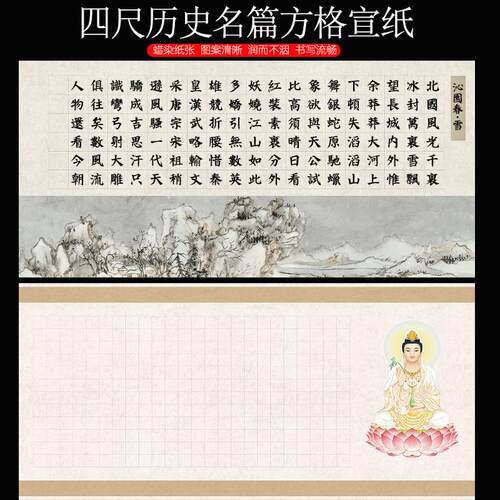 四尺历史名篇方格宣纸
蜡染纸张 图案清晰 润而不洇 书写流畅
沁园春·雪
北國風光千裏
冰封萬裏雪飄
望長城內外惟
余莽莽大河上
下頓失滔滔山
舞銀蛇原馳蠟
象欲與天公試
比高須晴日看
紅裝素裹分外
妖嬈江山如此
多嬌引無數英
雄競折腰惜秦
皇漢武略輸文
采唐宗宋祖稍
遜風騷一代天
驕成吉思汗只
識彎弓射大雕
俱往矣數風流
人物還看今朝